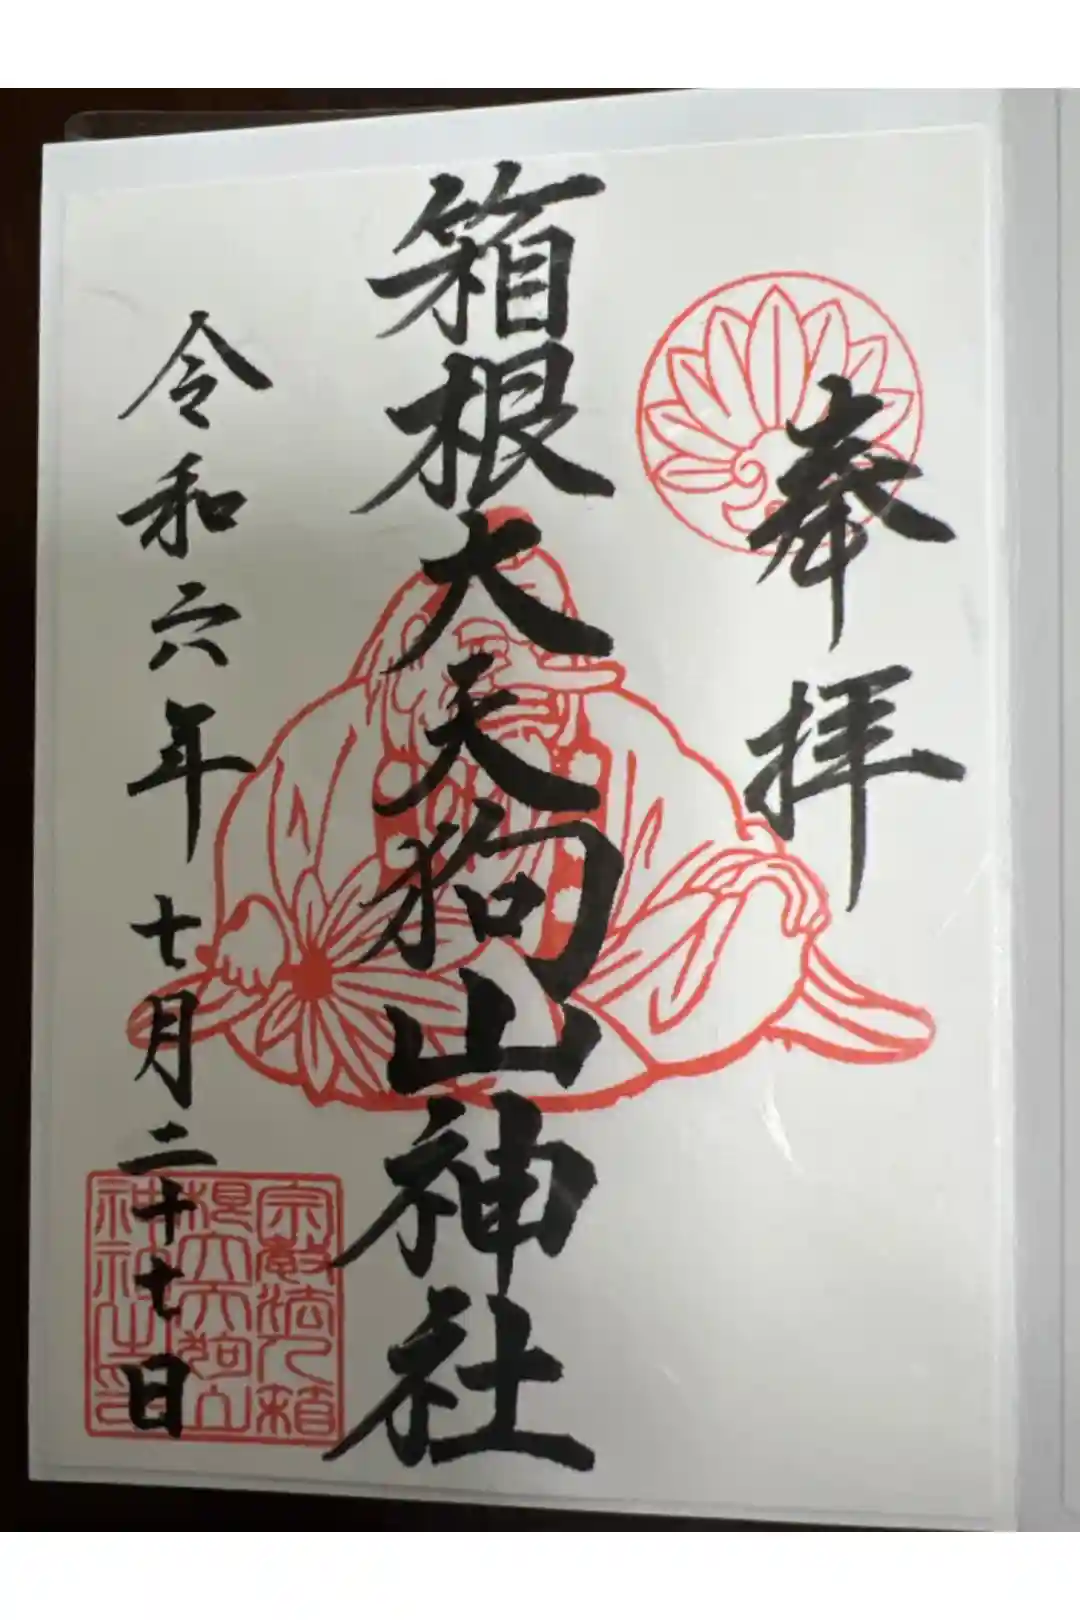 奉拝
箱根大天狗山神社
令和六年七月二十七日
宗教法人箱
根大天狗山
神社之印